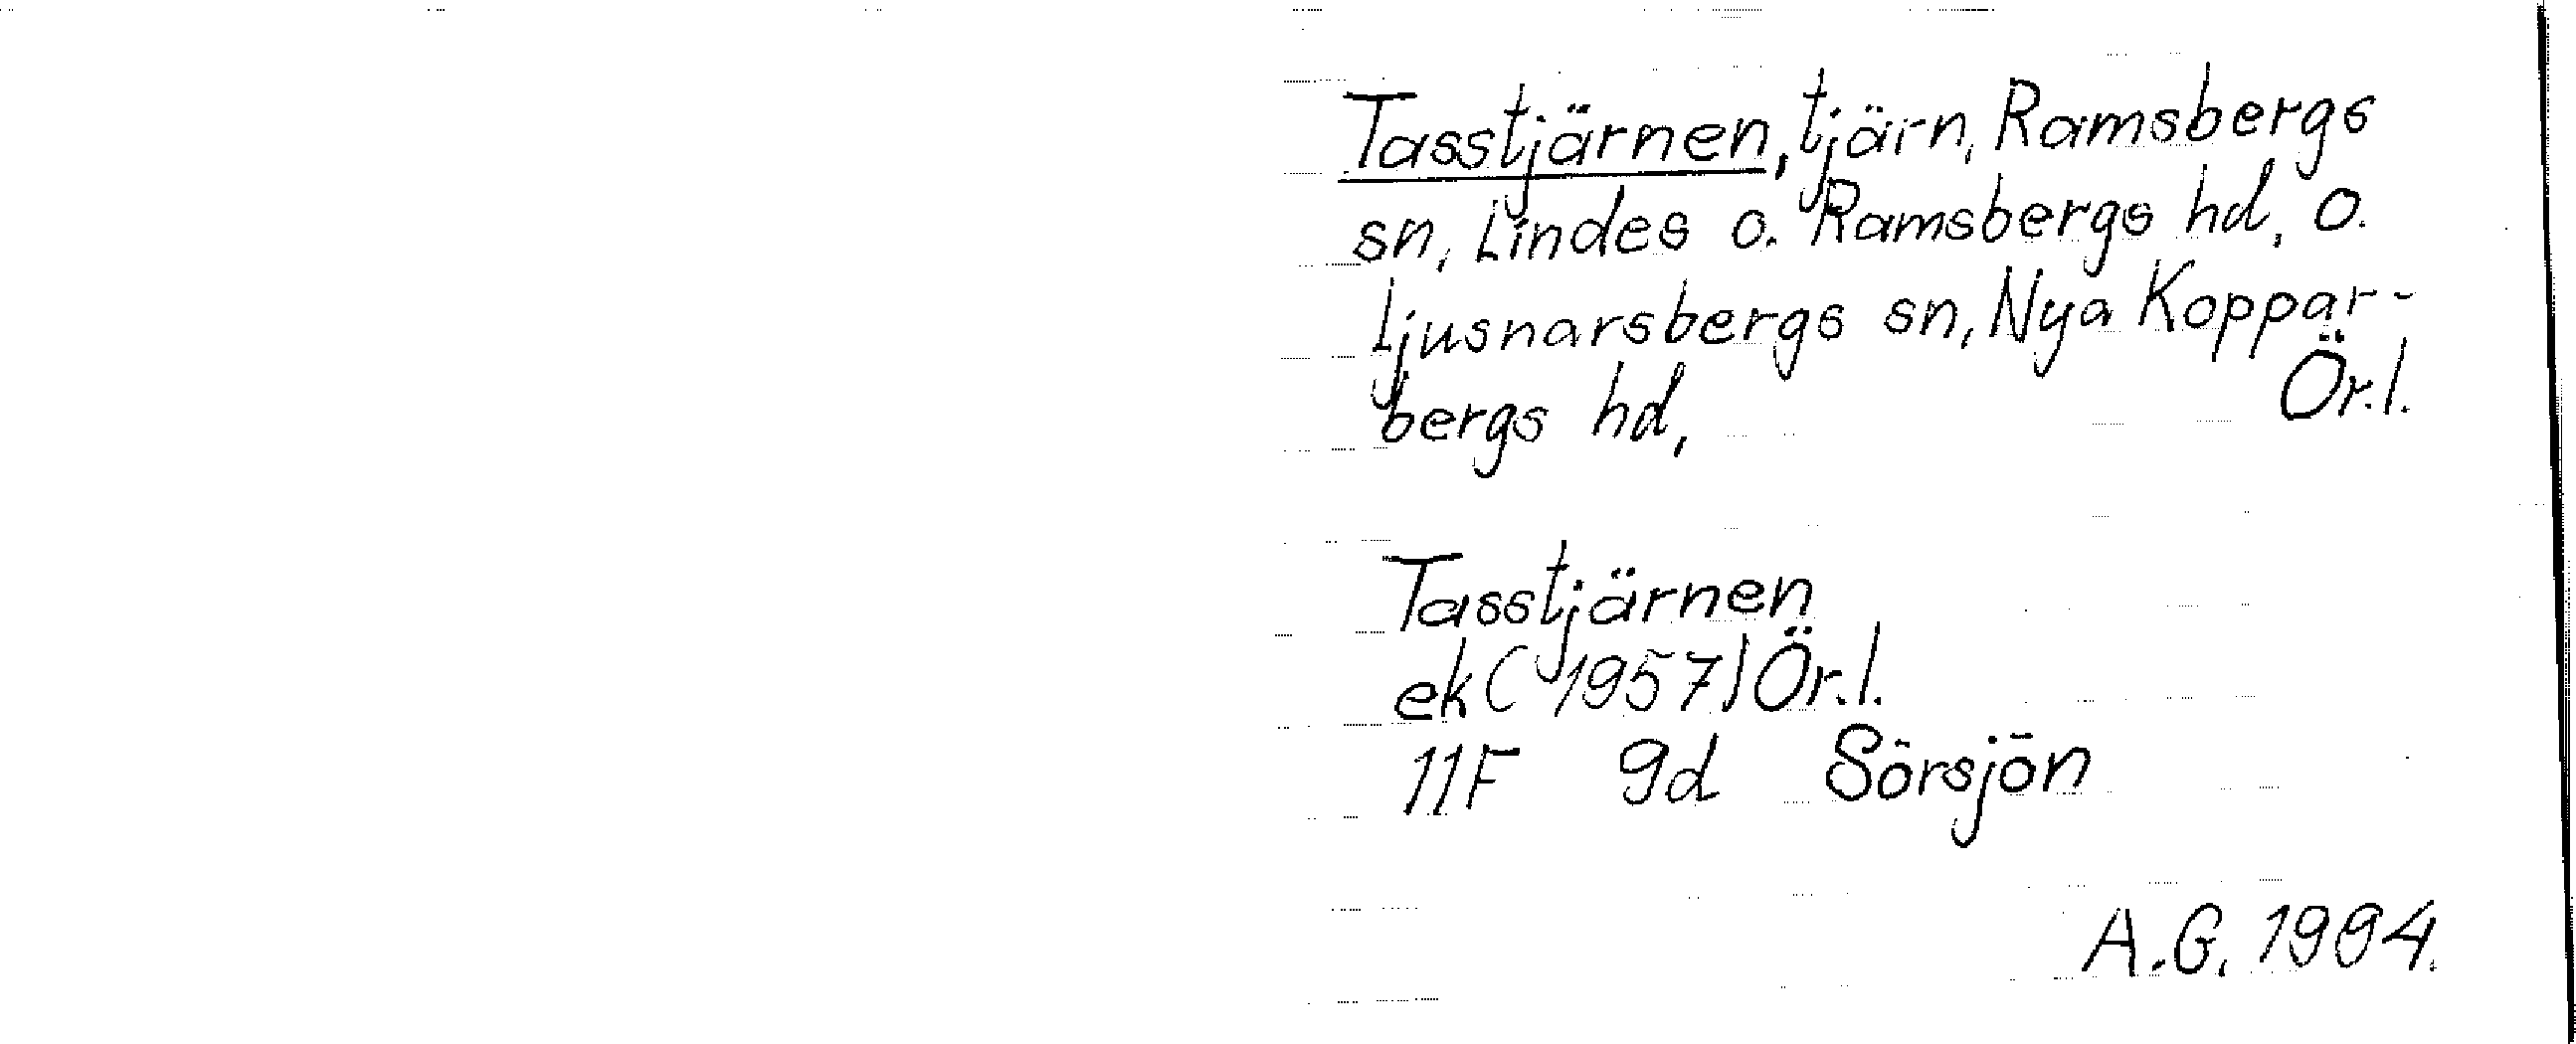 Tasstjärnen, tjärn, Ramsbergs
sn, Lindes o. Ramsbergs hd, o.
Ljusnarsbergs sn, Nya Koppar-
bergs hd, Ör.l.
Tasstjärnen
ek (1957) Ör.l.
11F 9d Sörsjön
A.G. 1994.